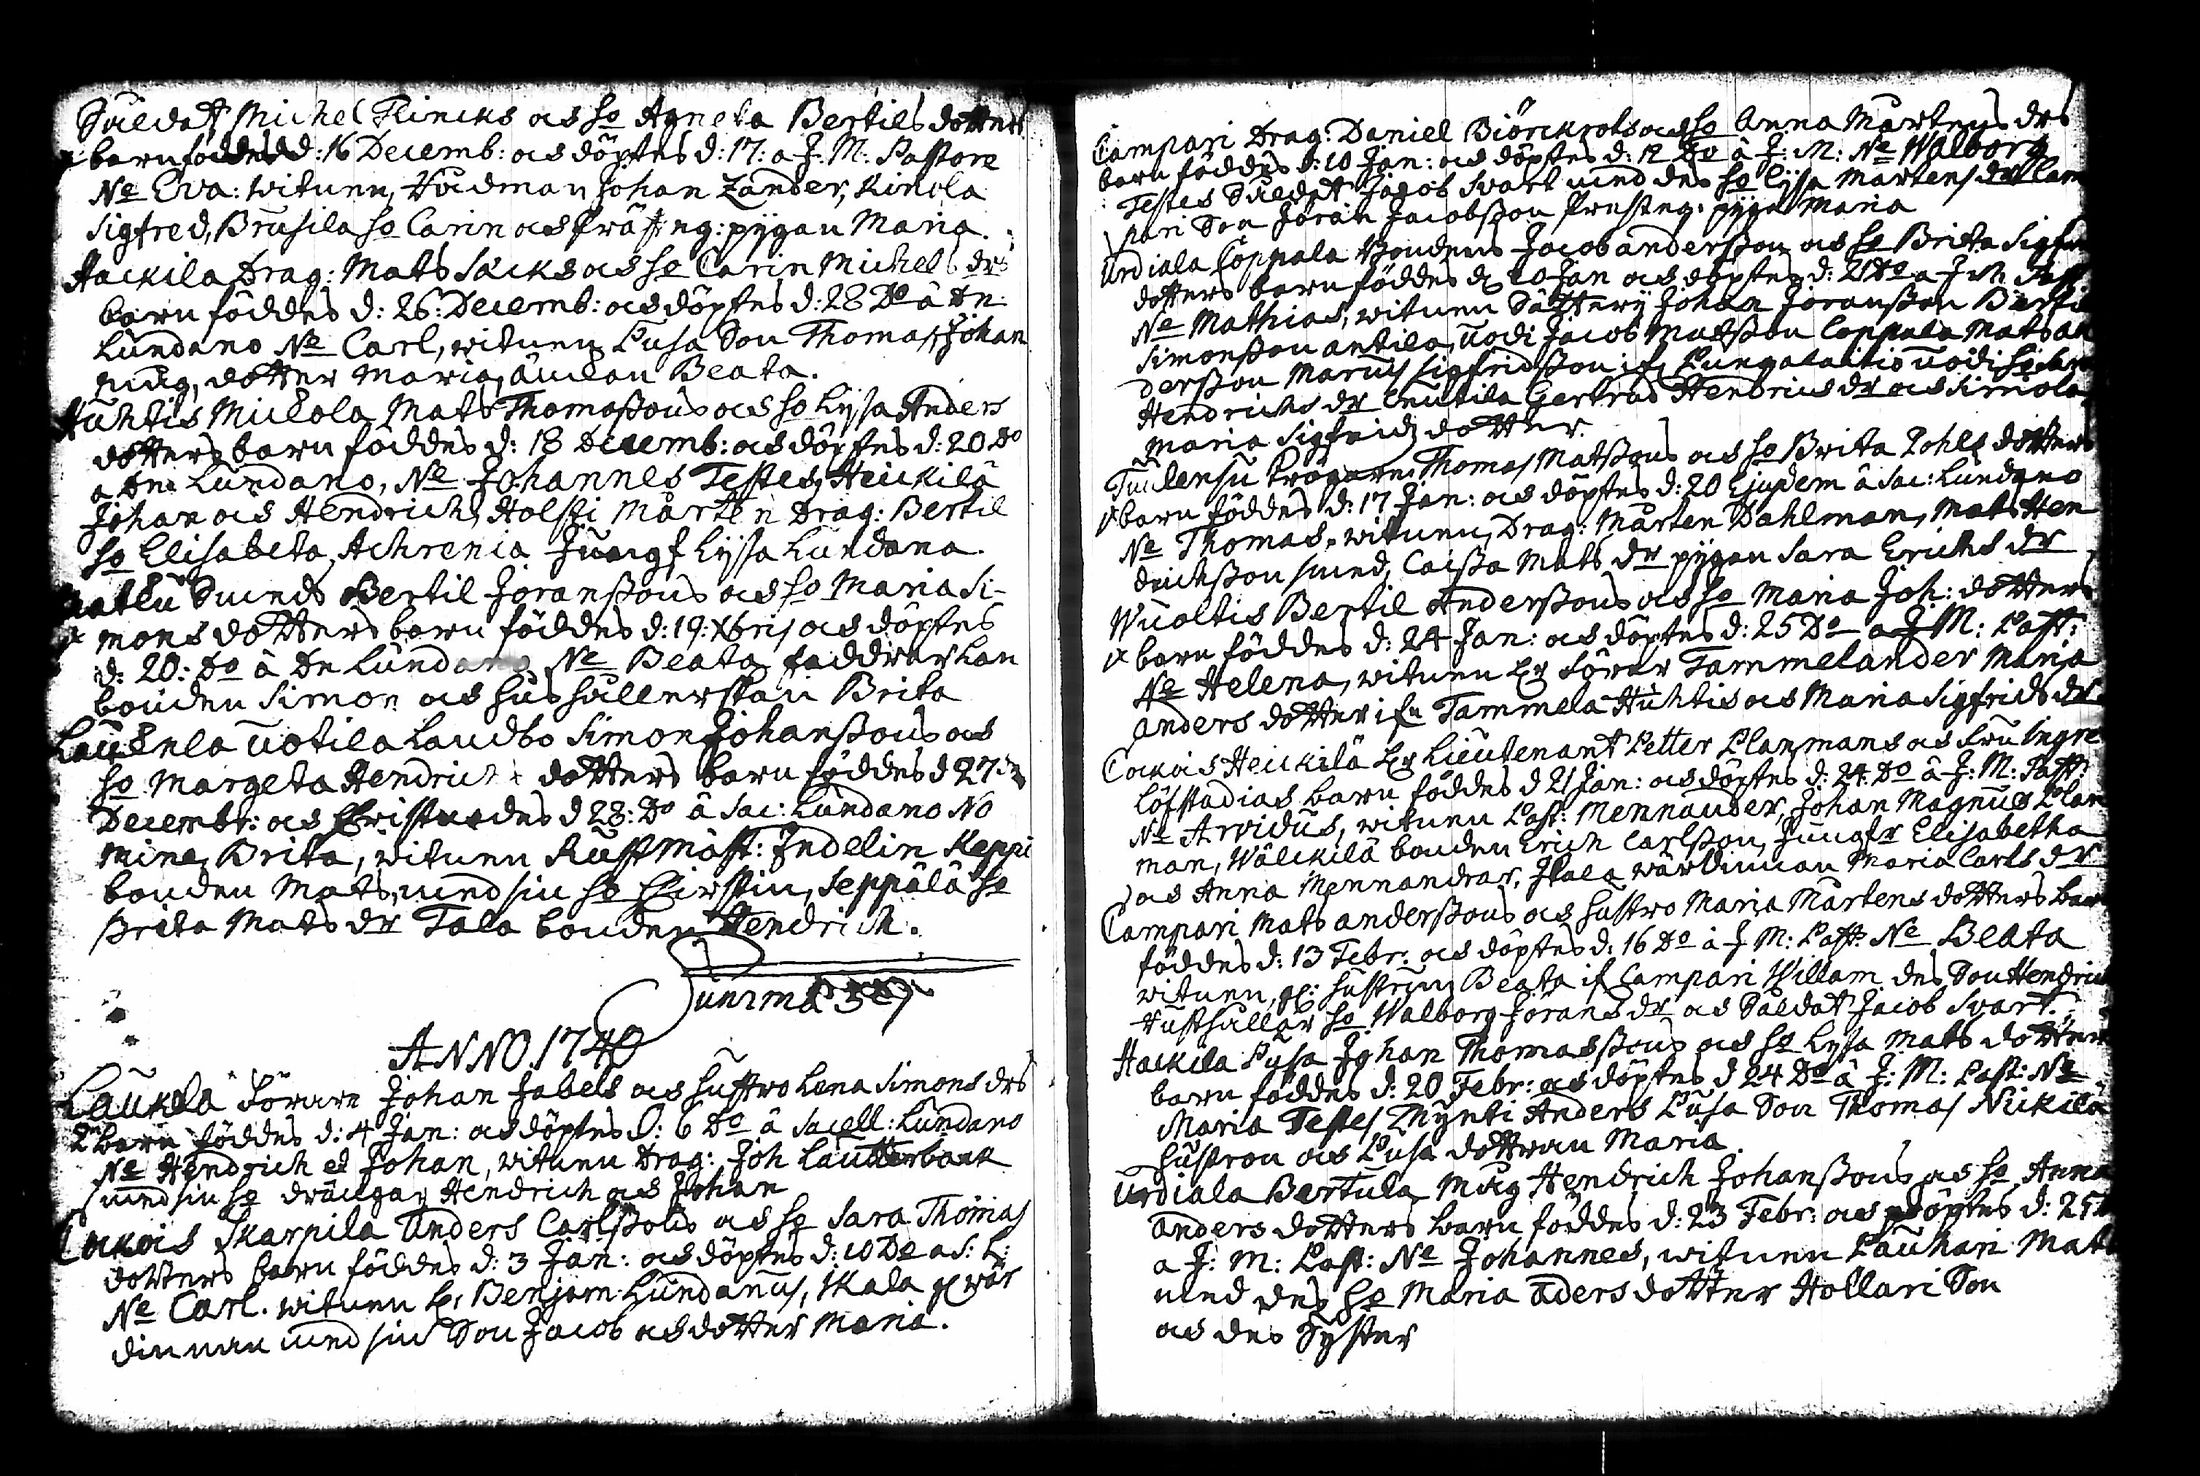 Såldat Michel Flincks och ho Agneta Bertils dotters
barn föddes d: 16 Decemb: och döptes d: 17: a J: M: Pastore
Ne Eva: witnen, Johan Zander, Kirola
Sigfred, Brusila ho Carin och Präst ng: pygan Maria.
Hackila Drag: Mats Säcks och ho Carin Michels drs
barn föddes d: 26: Decemb: och döptes d: 28 Do â Dn:
Lundano Ne Carl, witnen Pusa Son Thomas, Johan
måg, dotter Maria, änckan Beata.
Huhtis Mickola Mats Thomaßons och ho Lysa Anders
dotters barn föddes d: 18 Decemb: och döptes d: 20 Do
a Dn: Lundano, Ne Johannes Testes, Heickilä
Johan och Hendrich, Holsti Mårten Drag: Bertil
ho Elisabeta, Achrenia Jungf Lysa Lundana.
Smeds Bertil Joranßons och ho Maria Si-
mons dotters barn föddes d: 19: Xbris och döptes
d: 20: Do â Dn Lundano Ne Beata faddrar
bonden Simon och hushållerskan Brita
Uotila Landbo Simon Johanßons och
ho Margeta Hendrichs dotters barn föddes d 27
Decembr: och Christnades d 28: Do â Sac: Lundano No
mine, Brita, witnen Rustmäst: Indelin Keppi
bonden Mats, med sin ho Chirstin, Seppälä ho
Brita Mats dr Tala bonden Hendrich.
Summa 
ANNO 1740
Laukola Förare Johan Jabels och hustro Lena Simons drs
2 barn föddes d: 4 Jan: och döptes d: 6 Do â Sacell: Lundano
Ne Hendrich et Johan, witnen Drag: Joh Lautterback
med sin ho drängar Hendrich och Johan
Cokois Skarpila Anders Carlßons och ho Sara Thomas
dotters barn föddes d: 3 Jan: och döptes d: 10 Do a S: L:
Ne Carl. witnen Hr Benjam: Lundanus, Skala gl wär
dinnan med sin Son Jacob och dotter Maria.
Campari Drag: Daniel Biörckrots och ho Anna Mårtens drs
barn föddes d: 10 Jan: och döptes d: 12 Do â J: M: Ne Walborg
Testes Såldat Jacob Svart med des ho Lysa Mårtens dr Cam
pari Son Jöran Jacobßon Prestng: pygan Maria
Urdiala Coppala Bondens Jacob anderßon och ho Brita Sigfri
dotters barn föddes d 20 Jan och döptes d: 21 Do a J: M. Past
Ne Mathias, witnen Johan Joranßon Bertil
Simonßon antila, uodi Jacob Matßon Coppala Mats an
derßon Marcus Sigfridßon if Pungalaitio uodi
Hendrichs dr Gertrud Hendrics dr och Simola
Maria Sigfridz dotter.
Tuulensu Krögaren Thomas Matßons och ho Brita Pohls dotters
barn föddes d: 17 Jan: och döptes d: 20 Ejusdem â Sac: Lundano
Ne Thomas. witnen, Drag: Mårten Dahlman, Mats Hen
drichßon smed, Caisa Mats dr pygan Sara Erichs dr
Wualtis Bertil Anderßons och ho Maria Joh: dotters
barn föddes d: 24 Jan: och döptes d: 25 Do a J M: Past:
Ne Helena, witnen Hr Förar Tammelander Maria
anders dotter ifn Tammela Huhtis och Maria Sigfrids dr
Cokois Heickilä Hr Lieutenant Petter Planmans och Fru Ingre
Löfstadias barn föddes d 21 Jan: och döptes d: 24 Do â J: M: Past:
Ne Arvidus, witnen Past: Mennander, Johan Magnus Plan
man, Wälckilä bonden Erich Carlßon, Jungfr Elisabetha
och Anna Mennandrar, Skala wärdinnan Maria Carls dr
Campari Mats anderßons och hustro Maria Mårtens dotters barn
föddes d: 13 Febr: och döptes d: 16 Do â J M: Past: Ne Beata
witnen, gl: hustrun Beata if Campari Willam des Son Hendrich
Husthållar ho Walborg Jörans dr och Såldat Jacob Svart.
Hackila Pusa Johan Thomasßons och ho Lysa Mats dotters
barn föddes d: 20 Febr: och döptes d 24 Do â J: M: Past: Ne
Maria Testes Mynti Anders Pusa Son Thomas Nickilä
hustron och Pusa dottran Maria.
Urdiala Bertula Måg Hendrich Johanßons och ho Anna
anders dotters barn föddes d: 23 Febr: och döptes d: 25
a J: M: Past: Ne Johannes, witnen Lauhari Mats
med des ho Maria aders dotter Hollari Son
och des Syster